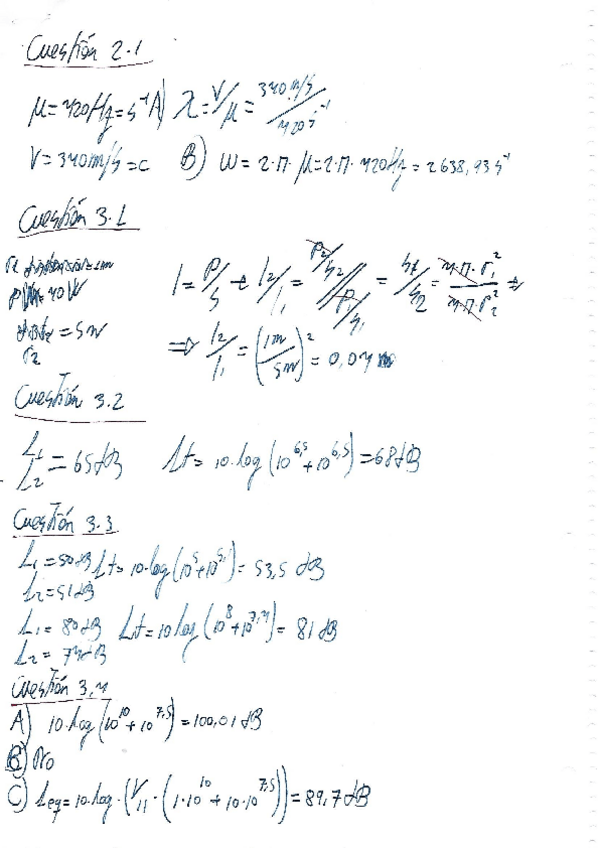 Cuestión 2.1
μ = 420Hz = s⁻¹ A) λ = V/μ = 340 m/s / 420 s⁻¹
V = 340 m/s = c B) ω = 2·π·μ = 2·π·420Hz = 2638,93 s⁻¹
Cuestión 3.1
= 40 W
= 5m
r₂
I = P/S → I₂/I₁ = P₂/S₂ / P₁/S₁ = S₁/S₂ = 4·π·r₁² / 4·π·r₂² →
⇒ I₂/I₁ = (1m/5m)² = 0,04
Cuestión 3.2
L₁
L₂ = 65dB Lt = 10·log(10^6,5 + 10^6,5) = 68dB
Cuestión 3.3
L₁ = 50dB Lt = 10·log(10^5 + 10^5,1) = 53,5 dB
L₂ = 51dB
L₁ = 80dB Lt = 10log(10^8 + 10^7,4) = 81dB
L₂ = 74dB
Cuestión 3.4
A) 10·log(10^10 + 10^7,5) = 100,01dB
B) No
C) Leq = 10·log·(1/11·(1·10^10 + 10·10^7,5)) = 89,7dB